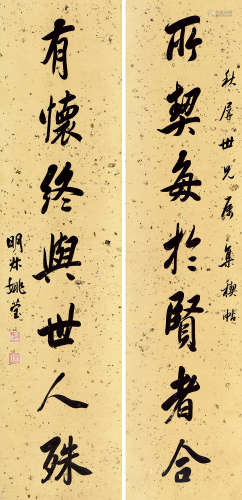 秋屏世兄属集禊帖
所契每於賢者合
有懷終與世人殊
明叔姚瑩